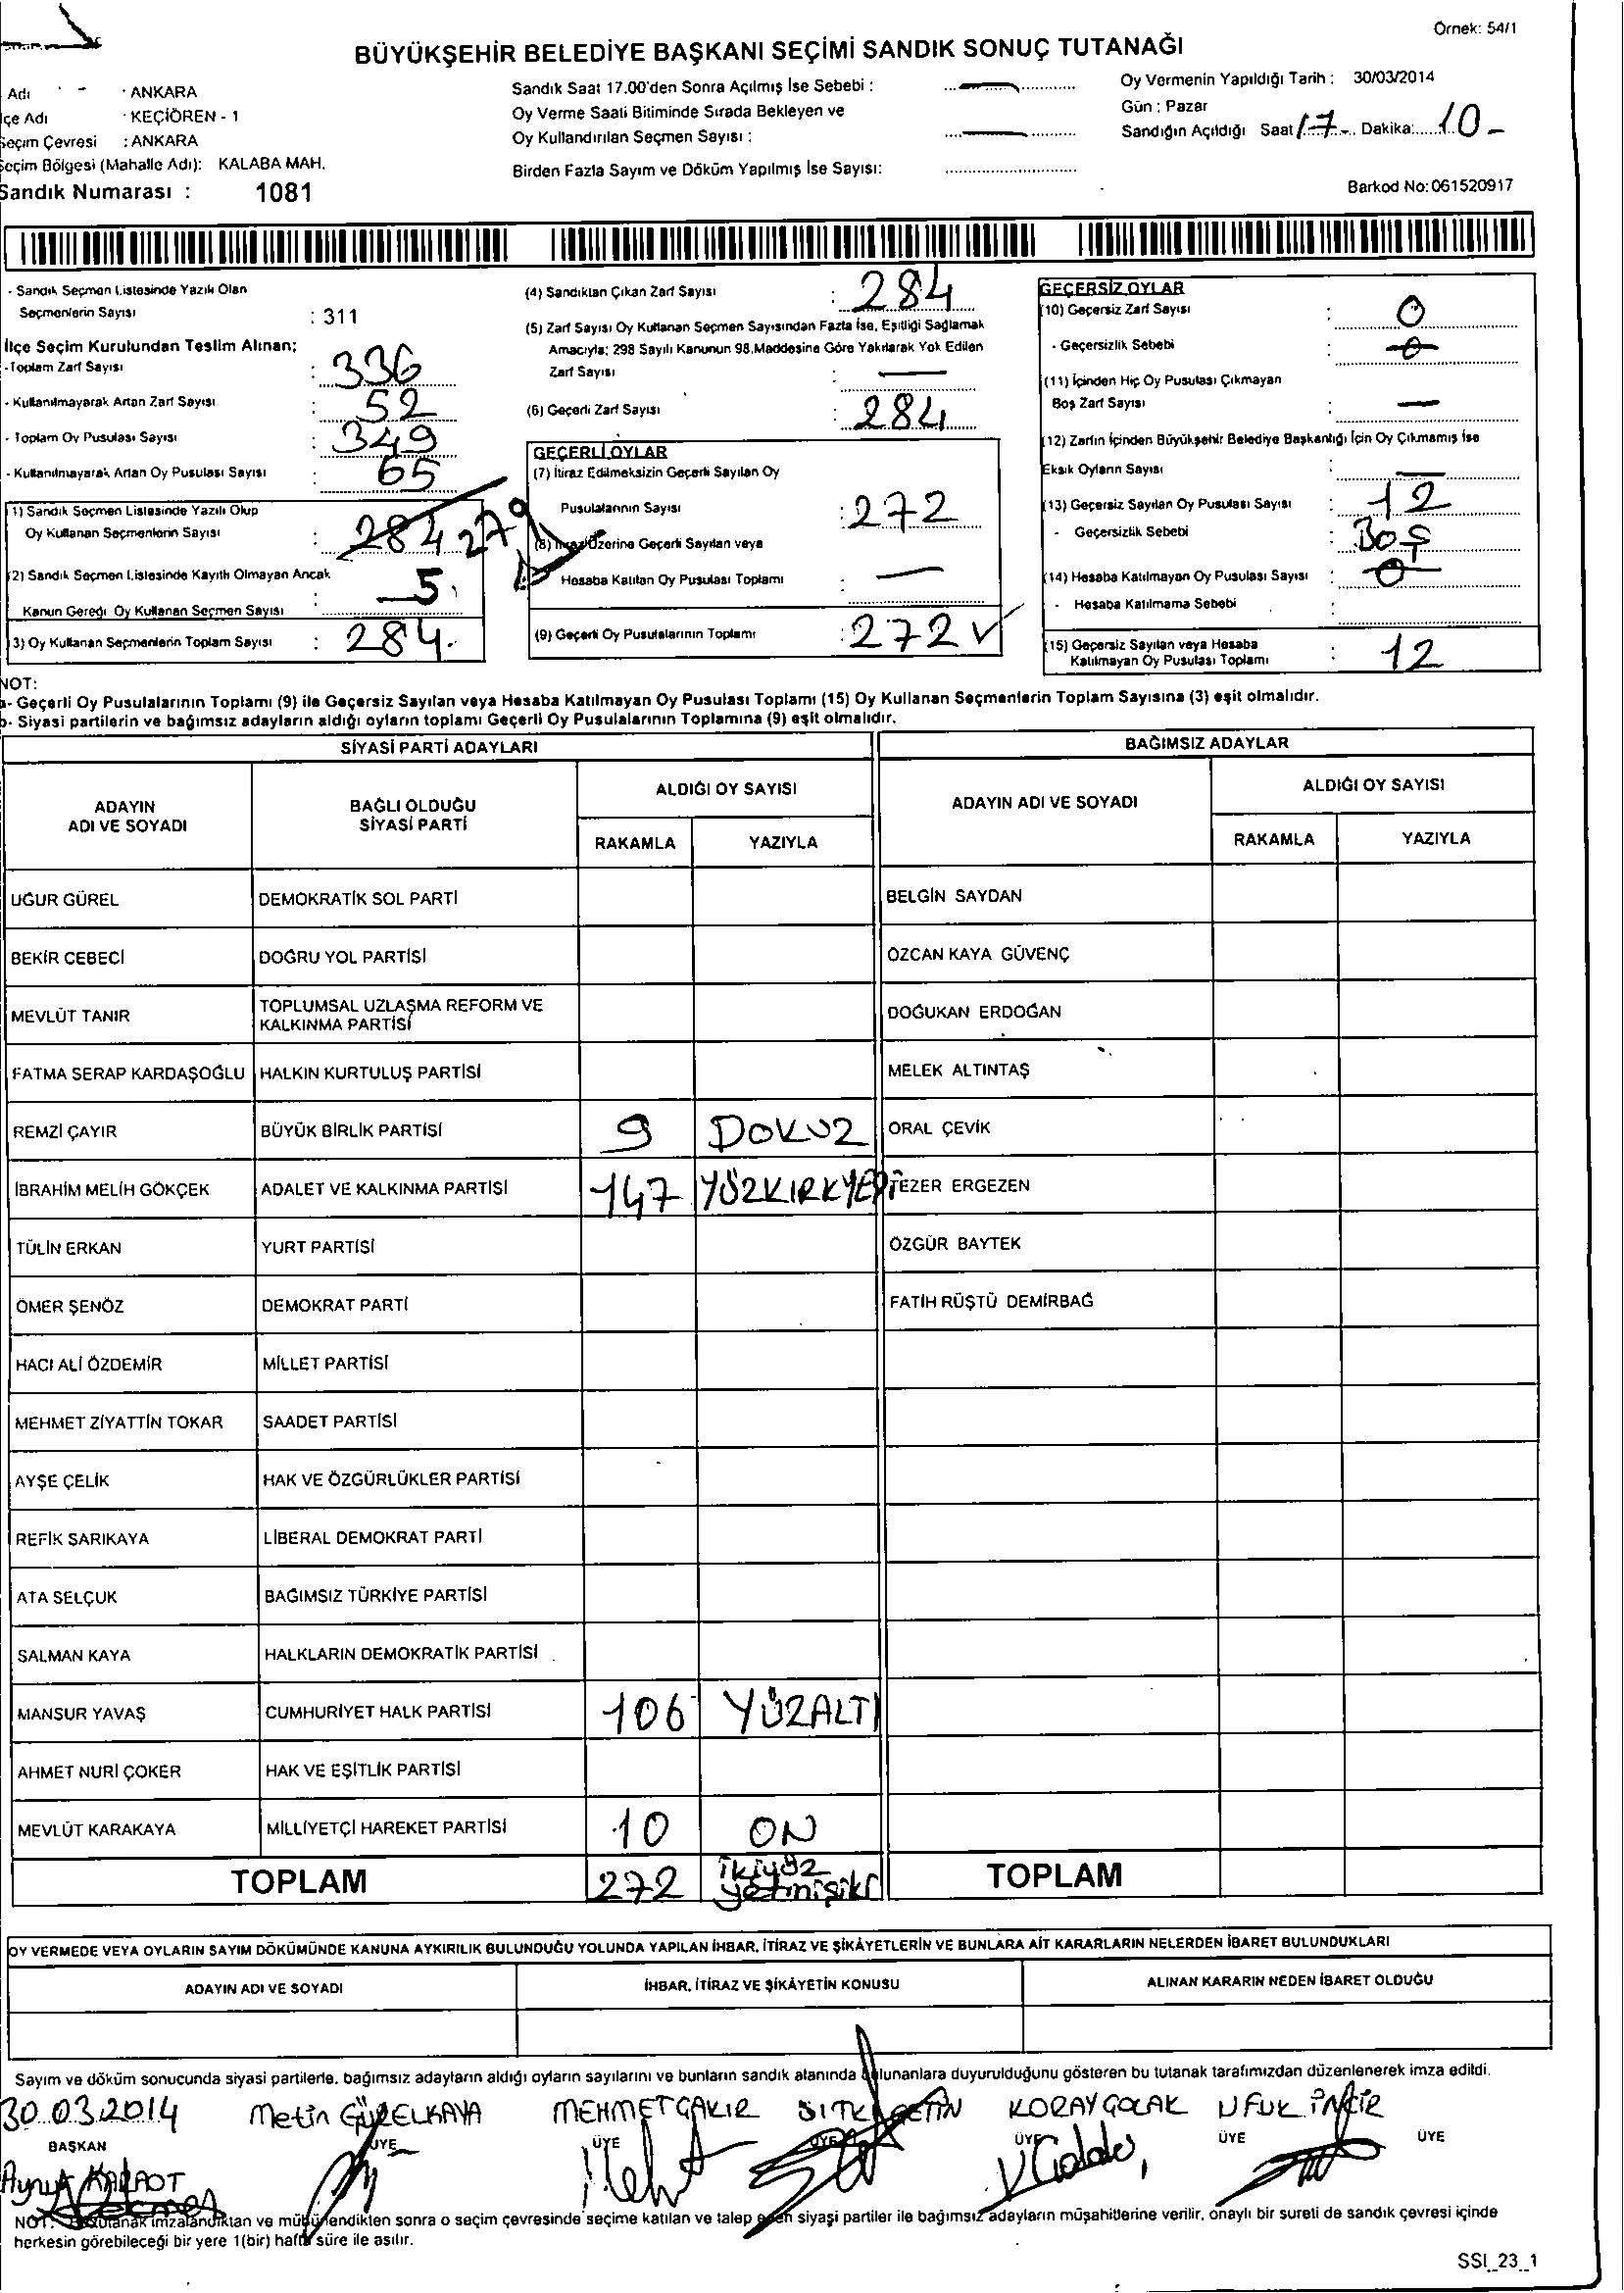 Örnek: 54/1
BÜYÜKŞEHİR BELEDİYE BAŞKANI SEÇİMİ SANDIK SONUÇ TUTANAĞI
Adı : ANKARA
lçe Adı : KEÇİÖREN - 1
Seçim Çevresi : ANKARA
Seçim Bölgesi (Mahalle Adı): KALABA MAH.
Sandık Numarası : 1081
Sandık Saat 17.00'den Sonra Açılmış İse Sebebi :
Oy Verme Saati Bitiminde Sırada Bekleyen ve
Oy Kullandırılan Seçmen Sayısı :
Birden Fazla Sayım ve Döküm Yapılmış İse Sayısı:
Oy Vermenin Yapıldığı Tarih : 30/03/2014
Gün : Pazar
Sandığın Açıldığı Saat 17 Dakika: 10
Barkod No: 061520917
- Sandık Seçmen Listesinde Yazılı Olan
Seçmenlerin Sayısı : 311
İlçe Seçim Kurulundan Teslim Alınan;
-Toplam Zarf Sayısı : 336
- Kullanılmayarak Artan Zarf Sayısı : 52
- Toplam Oy Pusulası Sayısı : 349
- Kullanılmayarak Artan Oy Pusulası Sayısı : 65
(1) Sandık Seçmen Listesinde Yazılı Olup
Oy Kullanan Seçmenlerin Sayısı : 284 279
(2) Sandık Seçmen Listesinde Kayıtlı Olmayan Ancak
Kanun Gereği Oy Kullanan Seçmen Sayısı : 5
(3) Oy Kullanan Seçmenlerin Toplam Sayısı : 284
(4) Sandıktan Çıkan Zarf Sayısı : 284
(5) Zarf Sayısı Oy Kullanan Seçmen Sayısından Fazla İse, Eşitliği Sağlamak
Amacıyla; 298 Sayılı Kanunun 98.Maddesine Göre Yakılarak Yok Edilen
Zarf Sayısı : —
(6) Geçerli Zarf Sayısı : 284
GEÇERLİ OYLAR
(7) İtiraz Edilmeksizin Geçerli Sayılan Oy
Pusulalarının Sayısı : 272
(8) İtiraz Üzerine Geçerli Sayılan veya
Hesaba Katılan Oy Pusulası Toplamı : —
(9) Geçerli Oy Pusulalarının Toplamı : 272
GEÇERSİZ OYLAR
(10) Geçersiz Zarf Sayısı : 0
- Geçersizlik Sebebi : 0
(11) İçinden Hiç Oy Pusulası Çıkmayan
Boş Zarf Sayısı : —
(12) Zarfın İçinden Büyükşehir Belediye Başkanlığı İçin Oy Çıkmamış İse
Eksik Oyların Sayısı : —
(13) Geçersiz Sayılan Oy Pusulası Sayısı : 12
- Geçersizlik Sebebi : BOŞ
(14) Hesaba Katılmayan Oy Pusulası Sayısı : 0
- Hesaba Katılmama Sebebi :
(15) Geçersiz Sayılan veya Hesaba
Katılmayan Oy Pusulası Toplamı : 12
NOT:
a- Geçerli Oy Pusulalarının Toplamı (9) ile Geçersiz Sayılan veya Hesaba Katılmayan Oy Pusulası Toplamı (15) Oy Kullanan Seçmenlerin Toplam Sayısına (3) eşit olmalıdır.
b- Siyasi partilerin ve bağımsız adayların aldığı oyların toplamı Geçerli Oy Pusulalarının Toplamına (9) eşit olmalıdır.
SİYASİ PARTİ ADAYLARI BAĞIMSIZ ADAYLAR
ADAYIN ADI VE SOYADI BAĞLI OLDUĞU SİYASİ PARTİ ALDIĞI OY SAYISI ADAYIN ADI VE SOYADI ALDIĞI OY SAYISI
RAKAMLA YAZIYLA RAKAMLA YAZIYLA
UĞUR GÜREL DEMOKRATİK SOL PARTİ BELGİN SAYDAN
BEKİR CEBECİ DOĞRU YOL PARTİSİ ÖZCAN KAYA GÜVENÇ
MEVLÜT TANIR TOPLUMSAL UZLAŞMA REFORM VE KALKINMA PARTİSİ DOĞUKAN ERDOĞAN
FATMA SERAP KARDAŞOĞLU HALKIN KURTULUŞ PARTİSİ MELEK ALTINTAŞ
REMZİ ÇAYIR BÜYÜK BİRLİK PARTİSİ 9 DOKUZ ORAL ÇEVİK
İBRAHİM MELİH GÖKÇEK ADALET VE KALKINMA PARTİSİ 147 YÜZKIRKYEDİ TEZER ERGEZEN
TÜLİN ERKAN YURT PARTİSİ ÖZGÜR BAYTEK
ÖMER ŞENÖZ DEMOKRAT PARTİ FATİH RÜŞTÜ DEMİRBAĞ
HACI ALİ ÖZDEMİR MİLLET PARTİSİ
MEHMET ZİYATTİN TOKAR SAADET PARTİSİ
AYŞE ÇELİK HAK VE ÖZGÜRLÜKLER PARTİSİ
REFİK SARIKAYA LİBERAL DEMOKRAT PARTİ
ATA SELÇUK BAĞIMSIZ TÜRKİYE PARTİSİ
SALMAN KAYA HALKLARIN DEMOKRATİK PARTİSİ
MANSUR YAVAŞ CUMHURİYET HALK PARTİSİ 106 YÜZALTI
AHMET NURİ ÇOKER HAK VE EŞİTLİK PARTİSİ
MEVLÜT KARAKAYA MİLLİYETÇİ HAREKET PARTİSİ 10 ON
TOPLAM 272 ikiyüz yetmişiki TOPLAM
OY VERMEDE VEYA OYLARIN SAYIM DÖKÜMÜNDE KANUNA AYKIRILIK BULUNDUĞU YOLUNDA YAPILAN İHBAR, İTİRAZ VE ŞİKÂYETLERİN VE BUNLARA AİT KARARLARIN NELERDEN İBARET BULUNDUKLARI
ADAYIN ADI VE SOYADI İHBAR, İTİRAZ VE ŞİKÂYETİN KONUSU ALINAN KARARIN NEDEN İBARET OLDUĞU
Sayım ve döküm sonucunda siyasi partilerle, bağımsız adayların aldığı oyların sayılarını ve bunların sandık alanında bulunanlara duyurulduğunu gösteren bu tutanak tarafımızdan düzenlenerek imza edildi.
30.03.2014 Metin GÜRELKAYA MEHMET ÇAKIR SITKI ÇETİN KORAY ÇOLAK UFUK
BAŞKAN ÜYE ÜYE ÜYE ÜYE ÜYE ÜYE
NOT: Tutanak imzalandıktan ve mühürlendikten sonra o seçim çevresinde seçime katılan ve talep eden siyasi partiler ile bağımsız adayların müşahitlerine verilir, onaylı bir sureti de sandık çevresi içinde
herkesin görebileceği bir yere 1(bir) hafta süre ile asılır.
SSI_23_1